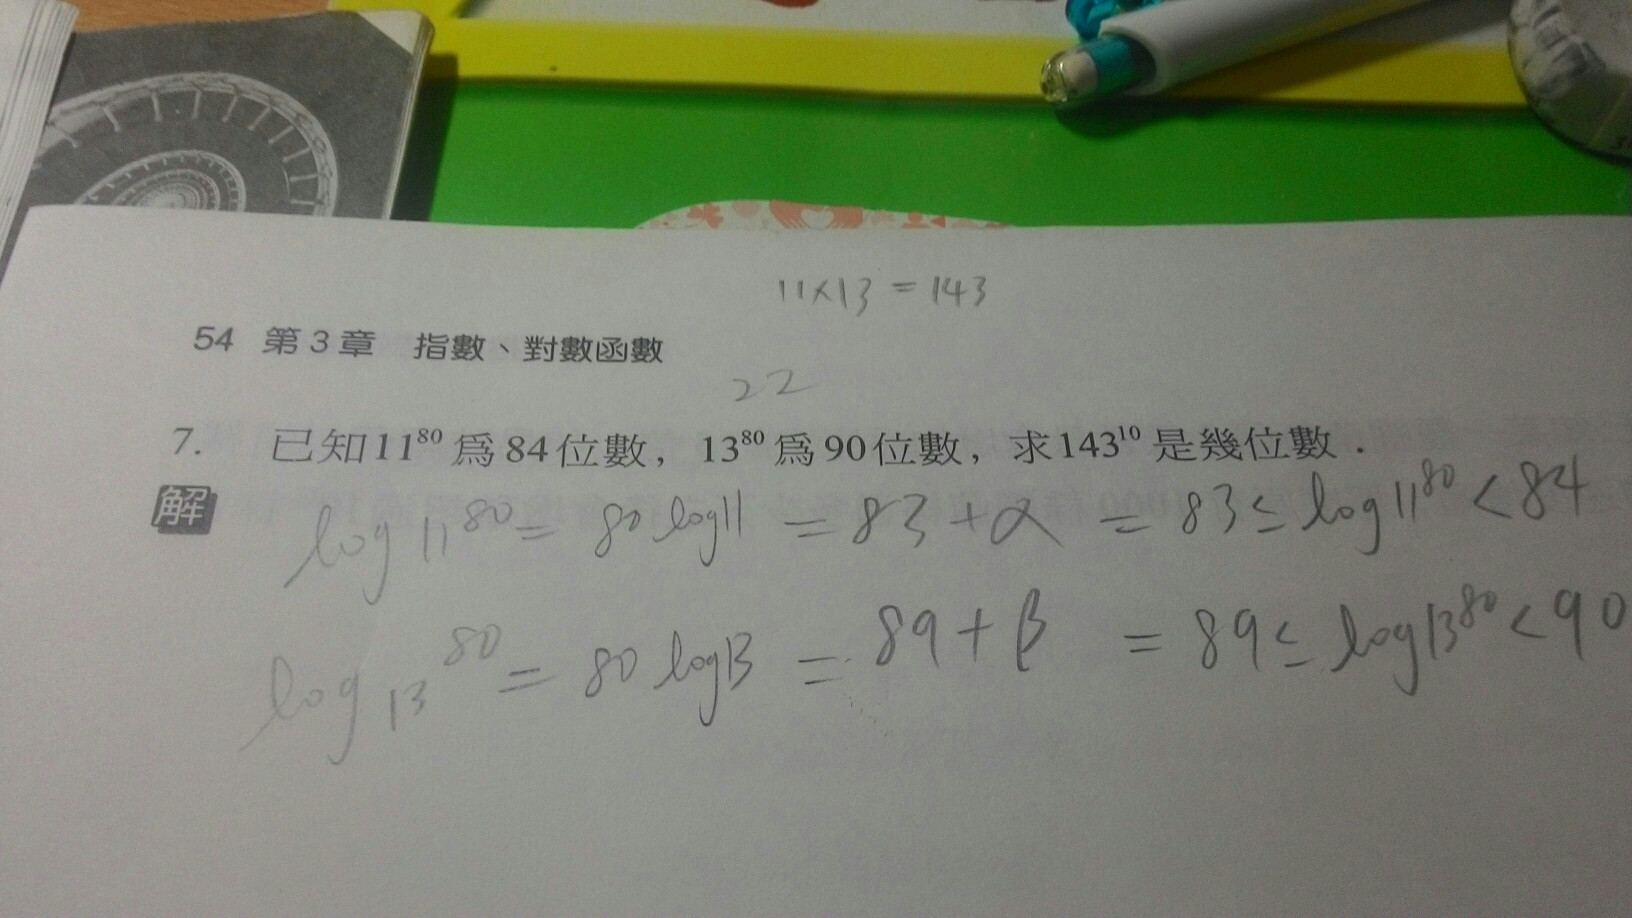 11×13 = 143
54 第3章 指數、對數函數
22
7. 已知11⁸⁰爲84位數，13⁸⁰爲90位數，求143¹⁰是幾位數．
解
log 11⁸⁰ = 80 log11 = 83+α = 83 ≤ log11⁸⁰ < 84
log 13⁸⁰ = 80 log13 = 89+β = 89 ≤ log13⁸⁰ < 90